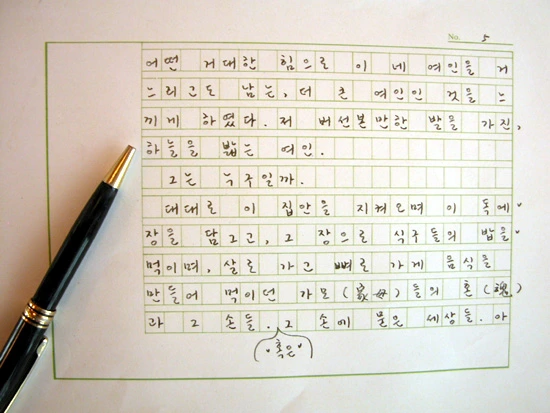 No. 5
어떤 거대한 힘으로 이 네 여인을 거
느리고도 남는, 더 큰 여인인 것을 느
끼게 하였다. 저 버선본만한 발을 가진,
하늘을 밟는 여인.
그는 누구일까.
대대로 이 집안을 지켜오며 이 독에
장을 담그고, 그 장으로 식구들의 밥을
먹이며, 살로 가고 뼈로 가게 음식을
만들어 먹이던 가모(家母)들의 혼(魂)
과 그 손들. 그 손에 묻은 세상들. 아
혹은